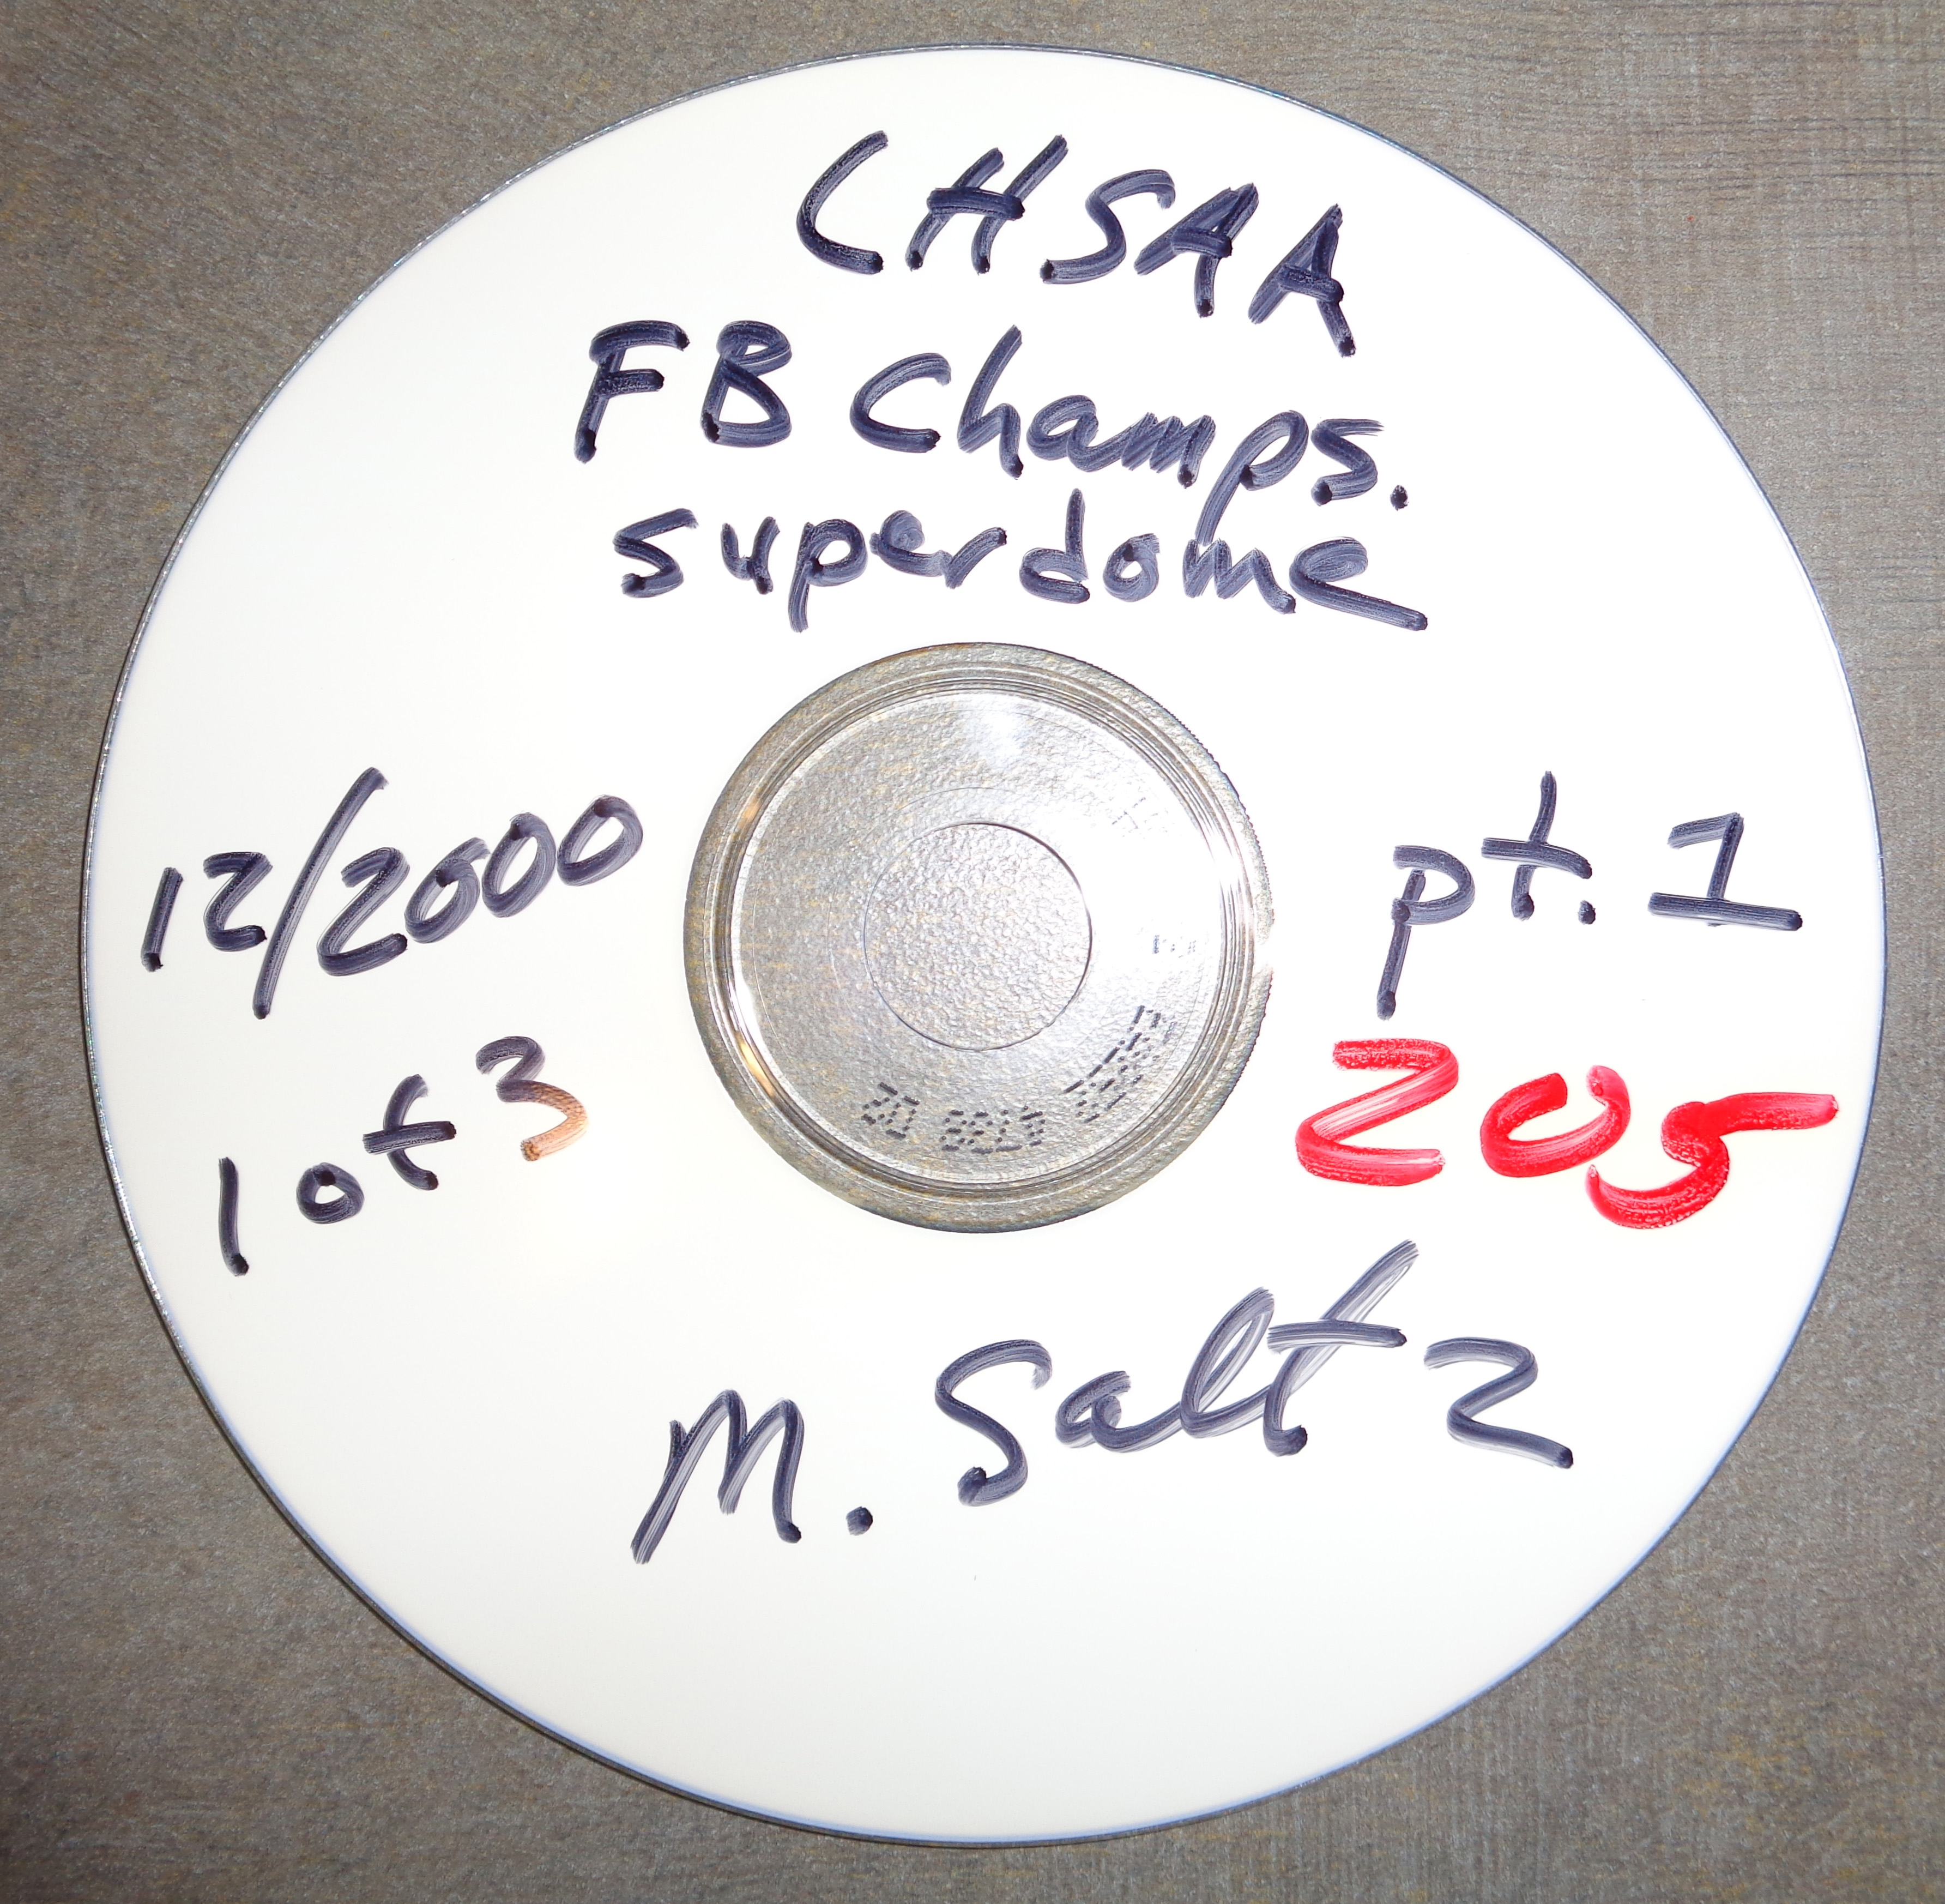 LHSAA
FB Champs.
superdome
12/2000
pt. 1
1 of 3
205
M. Saltz